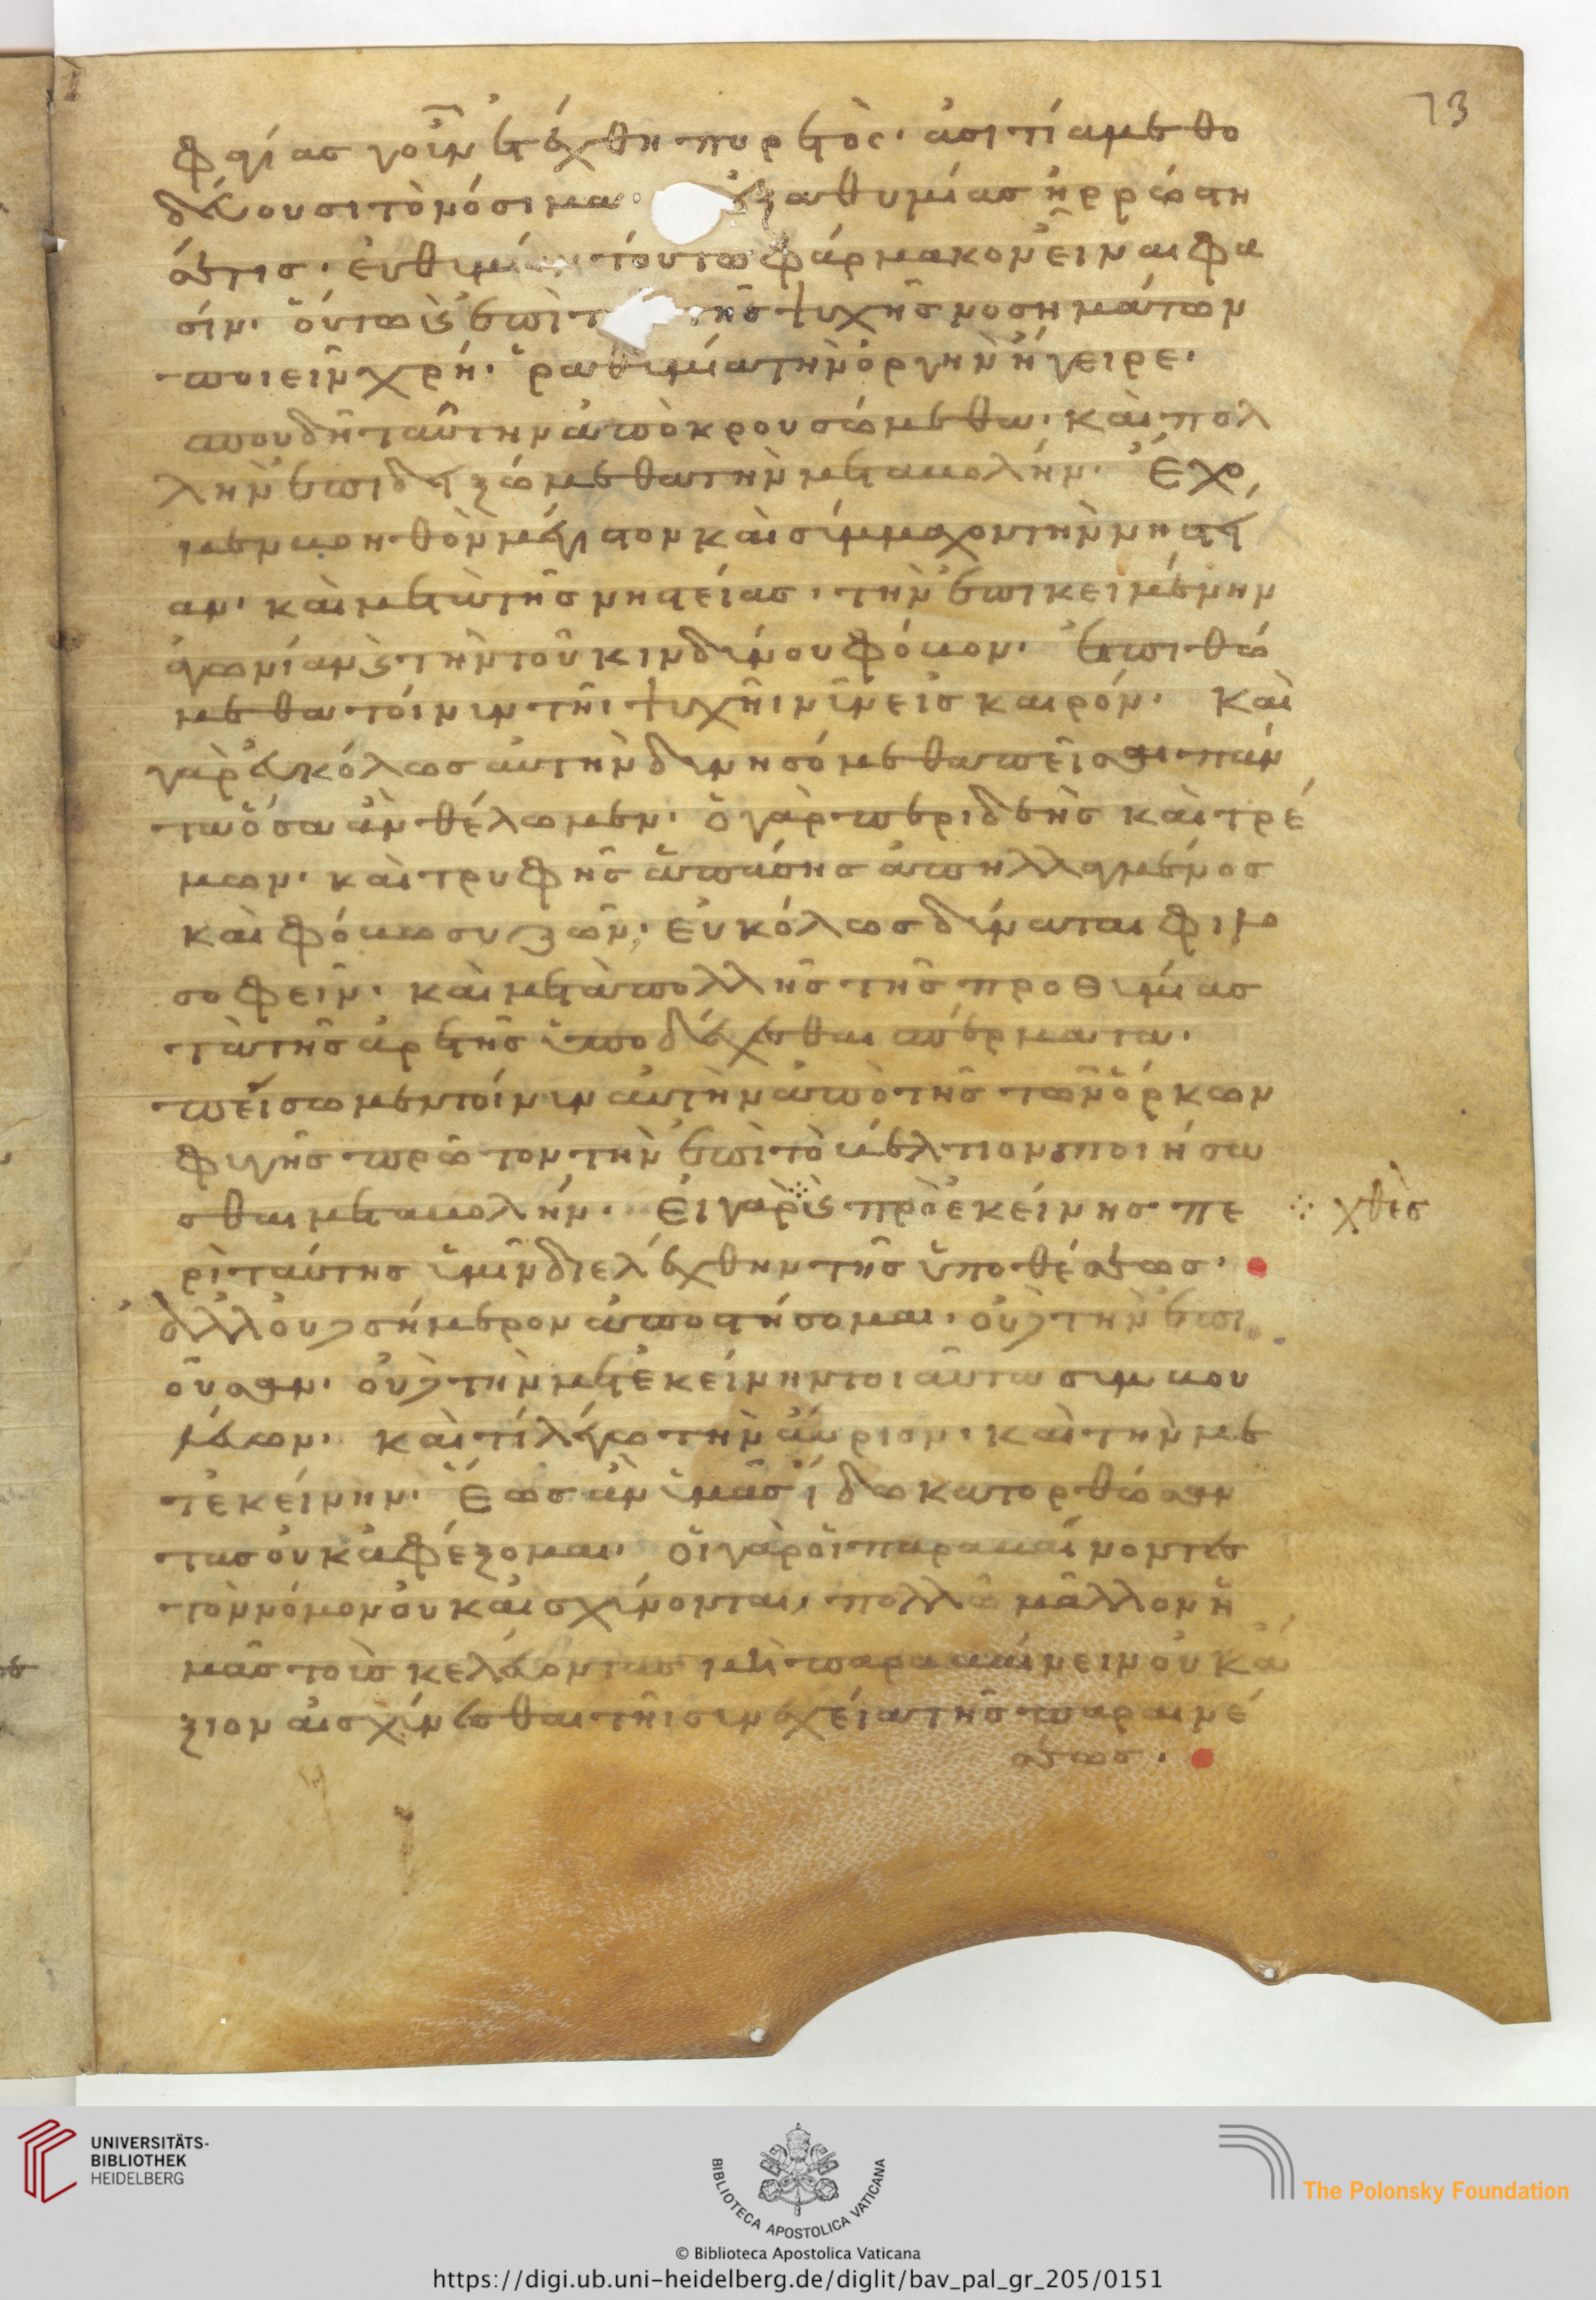 φαγίας γοῦν ἐτέχθη πυρετὸς· ἀσιτίᾳ μεθο
δεύουσι τὸ νόσημα· ἐξ ἀθυμίας ἠρρώστη
σέ τις· εὐθυμίαν τούτω φάρμακον εἶναι φα
σίν· οὕτω καὶ ἐπὶ τ τῆς ψυχῆς νοσημάτων
ποιεῖν χρή· ῥαθυμία τὴν ὀργὴν ἤγειρε·
σπουδῆ ταύτην ἀποκρουσώμεθα· καὶ πολ
λὴν ἐπιδειξώμεθα τὴν μεταβολήν· Ἔχο
μεν βοηθὸν μέγιστον καὶ σύμμαχον τὴν νηστεί
αν· καὶ μετὰ τῆς νηστείας· τὴν ἐπικειμένην
ἀγωνίαν καὶ τὴν τοῦ κινδύνου φόβον· ἐπιθώ
μεθα τοίνυν τῆι ψυχῆι νῦν εἰς καιρόν· Καὶ
γὰρ εὐκόλως αὐτὴν δυνησόμεθα πεῖσαι πάν
τα ὅσα ἂν θέλωμεν· ὁ γὰρ περιδεὴς καὶ τρέ
μων· καὶ τρυφῆς ἁπάσης ἀπηλλαγμένος
καὶ φόβω συζῶν· εὐκόλως δύναται φιλο
σοφεῖν· καὶ μετὰ πολλῆς τῆς προθυμίας
τὰ τῆς ἀρετῆς ὑποδέχεσθαι σπέρματα·
πείσωμεν τοίνυν αὐτὴν ἀπὸ τῆς τῶν ὅρκων
φυγῆς πρῶτον τὴν ἐπὶ τὸ βέλτιον ποιήσα
σθαι μεταβολήν· Εἰ γὰρ καὶ πρὸ ἐκείνης πε ⁘ χθὲς
ρὶ ταύτης ὑμῖν διελέχθην τῆς ὑποθέσεως·
ἀλλ' οὐδὲ σήμερον ἀποστήσομαι· οὐδὲ τὴν ἐπι
οῦσαν· οὐδὲ τὴν μετ' ἐκείνην τοιαῦτα συμβου
λεύων· καὶ τί λέγω τὴν αὔριον· καὶ τὴν με
τ' ἐκείνην· Ἕως ἂν ὑμᾶς ἴδω κατορθώσαν
τας οὐκ ἀφέξομαι· οἱ γὰρ οἱ παραβαίνοντες
τὸν νόμον οὐκ αἰσχύνονται, πολλῶ μᾶλλον ἡ
μᾶς τοὺς κελεύοντας μὴ παραβαίνειν οὐκ ἄ
ξιον αἰσχύνεσθαι τῆι συνεχεία τῆς παραινέ
σεως·
73
UNIVERSITÄTS-
BIBLIOTHEK
HEIDELBERG
BIBLIOTECA APOSTOLICA VATICANA
The Polonsky Foundation
© Biblioteca Apostolica Vaticana
https://digi.ub.uni-heidelberg.de/diglit/bav_pal_gr_205/0151